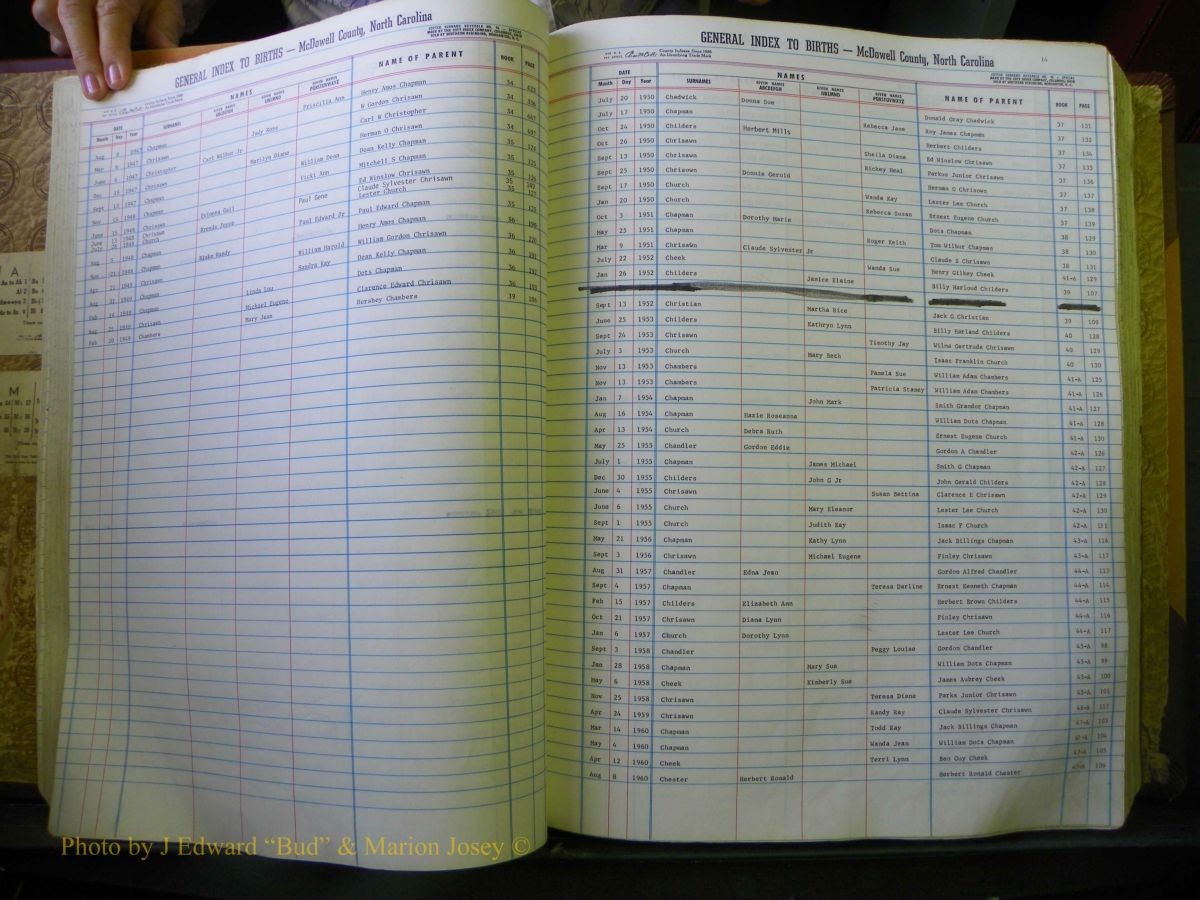 GENERAL INDEX TO BIRTHS — McDowell County, North Carolina
DATE NAMES NAME OF PARENT BOOK PAGE
Month Day Year SURNAMES
Priscilla Ann Henry Amos Chapman 34
W Gordon Chrisawn 34
Judy Rose Carl W Christopher 34
Herman O Chrisawn 34
Carl Wilbur Jr Dean Kelly Chapman 35
Marilyn Diane Mitchell S Chapman 35
William Dean Ed Winslow Chrisawn 35
Vicki Ann Claude Sylvester Chrisawn 35
Lester Church 35
Paul Gene Paul Edward Chapman 35
Brenda Joyce Paul Edward Jr Henry Amos Chapman 36
William Gordon Chrisawn 36
William Harold Dean Kelly Chapman 36
Sandra Kay Dots Chapman 36
Linda Lou Clarence Edward Chrisawn 36
Michael Eugene Hershey Chambers 39
Mary Jean
GENERAL INDEX TO BIRTHS — McDowell County, North Carolina 14
DATE NAMES
Month Day Year SURNAMES GIVEN NAMES ABCDEFGH GIVEN NAMES IJKLMNO GIVEN NAMES PQRSTUVWXYZ NAME OF PARENT BOOK PAGE
July 20 1950 Chadwick Donna Sue Donald Gray Chadwick 37 131
July 17 1950 Chapman Rebecca Jane Roy James Chapman 37 132
Oct 24 1950 Childers Herbert Mills Herbert Childers 37 134
Oct 26 1950 Chrisawn Sheila Diane Ed Winslow Chrisawn 37 135
Sept 13 1950 Chrisawn Rickey Neal Parkus Junior Chrisawn 37 136
Sept 25 1950 Chrisown Donnis Gerold Herman O Chrisown 37 137
Sept 17 1950 Church Wanda Kay Lester Lee Church 37 138
Jan 20 1950 Church Rebecca Susan Ernest Eugene Church 37 139
Oct 3 1951 Chapman Dorothy Marie Dots Chapman 38 129
May 25 1951 Chapman Roger Keith Tom Wilbur Chapman 38 130
Mar 9 1951 Chrisawn Claude Sylvester Jr Claude S Chrisawn 38 131
July 22 1952 Cheek Wanda Sue Henry Gilkey Cheek 41-A 129
Jan 26 1952 Childers Janice Elaine Billy Harloud Childers 39 107
Sept 13 1952 Christian Martha Rice Jack G Christian 39 109
June 25 1953 Childers Kathryn Lynn Billy Harland Childers 40 128
Sept 24 1953 Chrisawn Timothy Jay Wilma Gertrude Chrisawn 40 129
July 3 1953 Church Mary Beth Isaac Franklin Church 40 130
Nov 13 1953 Chambers Pamela Sue William Adam Chambers 41-A 125
Nov 13 1953 Chambers Patricia Stamey William Adan Chambers 41-A 126
Jan 7 1954 Chapman John Mark Smith Grandor Chapman 41-A 127
Aug 16 1954 Chapman Hazie Roseanna William Dots Chapman 41-A 128
Apr 13 1954 Church Debra Ruth Ernest Eugene Church 41-A 130
May 25 1955 Chandler Gordon Eddie Gordon A Chandler 42-A 126
July 1 1955 Chapman James Michael Smith G Chapman 42-A 127
Dec 30 1955 Childers John G Jr John Gerald Childers 42-A 128
June 4 1955 Chrisawn Susan Bettina Clarence E Chrisawn 42-A 129
June 6 1955 Church Mary Eleanor Lester Lee Church 42-A 130
Sept 1 1955 Church Judith Kay Isaac F Church 42-A 131
May 21 1956 Chapman Kathy Lynn Jack Billings Chapman 43-A 116
Sept 3 1956 Chrisawn Michael Eugene Finley Chrisawn 43-A 117
Aug 31 1957 Chandler Edna Jean Gordon Alfred Chandler 44-A 113
Sept 4 1957 Chapman Teresa Darline Ernest Kenneth Chapman 44-A 114
Feb 15 1957 Childers Elizabeth Ann Herbert Brown Childers 44-A 115
Oct 21 1957 Chrisawn Diana Lynn Finley Chrisawn 44-A 116
Jan 6 1957 Church Dorothy Lynn Lester Lee Church 44-A 117
Sept 3 1958 Chandler Peggy Louise Gordon Chandler 45-A 98
Jan 28 1958 Chapman Mary Sue William Dots Chapman 45-A 99
May 6 1958 Cheek Kimberly Sue James Aubrey Cheek 45-A 100
Nov 25 1958 Chrisawn Teresa Diana Parks Junior Chrisawn 45-A 101
Apr 24 1959 Chrisawn Randy Ray Claude Sylvester Chrisawn 46-A 117
Mar 14 1960 Chapman Todd Ray Jack Billings Chapman 47-A 103
May 4 1960 Chapman Wanda Jean William Dots Chapman 47-A 104
Apr 12 1960 Cheek Terri Lynn Ben Guy Cheek 47-A 105
Aug 8 1960 Chester Herbert Ronald Herbert Ronald Chester 47-A 106
Photo by J Edward “Bud” & Marion Josey ©